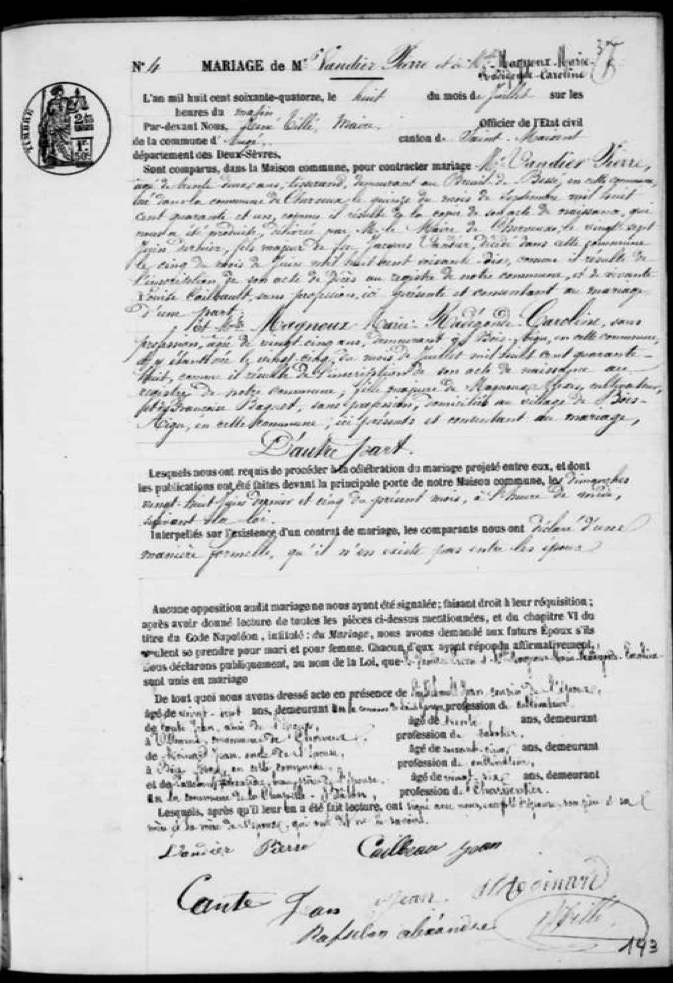 37
N° 4 MARIAGE de Mr Vandier Pierre et de Mlle Magnoux Marie-
Radégonde Caroline
TIMBRE
L'an mil huit cent soixante-quatorze, le huit du mois de Juillet sur les
heures du matin
Par-devant Nous, Tillé, Maire Officier de l'Etat civil
de la commune d' canton de Saint-Maixent
département des Deux-Sèvres.
Sont comparus, dans la Maison commune, pour contracter mariage Mr Vandier Pierre,
âgé de trente deux ans, tisserand, demeurant au Breuil de Bessé, en cette commune,
né dans la commune de Cherveux, le quinze du mois de Septembre mil huit
cent quarante et un, comme il résulte de la copie de son acte de naissance, qui
nous a été produite, délivrée par M. le Maire de Cherveux, le vingt sept
Juin dernier, fils majeur de feu Jacques Vandier, décédé dans cette commune
le cinq du mois de Juin mil huit cent soixante dix, comme il résulte de
l'inscription de son acte de décès au registre de notre commune, et de vivante
Louise Cailbault, sans profession, ici présente et consentant au mariage
D'une part;
Et Mlle Magnoux Marie Radégonde Caroline, sans
profession, âgée de vingt cinq ans, demeurant à Bois-Aigu, en cette commune,
y étant née le vingt-cinq du mois de Juillet mil huit cent quarante-
huit, comme il résulte de l'inscription de son acte de naissance au
registre de notre commune, fille majeure de Magnoux cultivateur,
et de Françoise Baguet, sans profession, domiciliés au village de Bois-
Aigu, en cette commune, ici présents et consentant au mariage,
D'autre part.
Lesquels nous ont requis de procéder à la célébration du mariage projeté entre eux, et dont
les publications ont été faites devant la principale porte de notre Maison commune, les dimanches
vingt-huit Juin dernier et cinq du présent mois, à l'heure de midi,
suivant la loi.
Interpellés sur l'existence d'un contrat de mariage, les comparants nous ont déclaré d'une
manière formelle, qu'il n'en existe pas entre les époux
Aucune opposition audit mariage ne nous ayant été signalée; faisant droit à leur réquisition;
après avoir donné lecture de toutes les pièces ci-dessus mentionnées, et du chapitre VI du
titre du Code Napoléon, intitulé: du Mariage, nous avons demandé aux futurs Époux s'ils
veulent se prendre pour mari et pour femme. Chacun d'eux ayant répondu affirmativement,
nous déclarons publiquement, au nom de la Loi, que Vandier Pierre et Mlle Magnoux Marie Radégonde Caroline
sont unis en mariage
De tout quoi nous avons dressé acte en présence de Jean, cousin de l'époux,
âgé de vingt-sept ans, demeurant en la commune de profession de cultivateur
de Cante Jean, ami de l'époux, âgé de trente ans, demeurant
à commune de Cherveux profession de sabotier,
de Moinard Jean, oncle de l'épouse, âgé de ans, demeurant
à en cette commune profession de cultivateur,
et de Alexandre, de l'épouse, âgé de vingt six ans, demeurant
en la commune de la Chapelle-Bâton, profession de Charpentier.
Lesquels, après qu'il leur en a été fait lecture, ont signé avec nous, excepté l'épouse, son père et sa
mère et la mère de l'époux, qui ont dit ne le savoir.
Vandier Pierre Cailbeau Jean
Cante Jean Jean Moinard
Bafselon alexandre Tillé
193